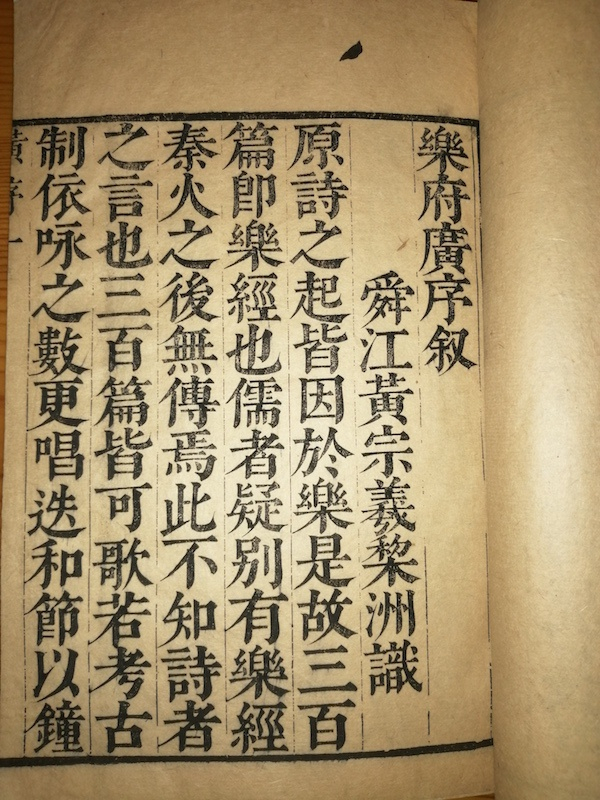 樂府廣序叙
舜江黃宗羲棃洲識
原詩之起皆因於樂是故三百
篇卽樂經也儒者疑别有樂經
秦火之後無傳焉此不知詩者
之言也三百篇皆可歌若考古
制依咏之數更唱迭和節以鐘
廣序一